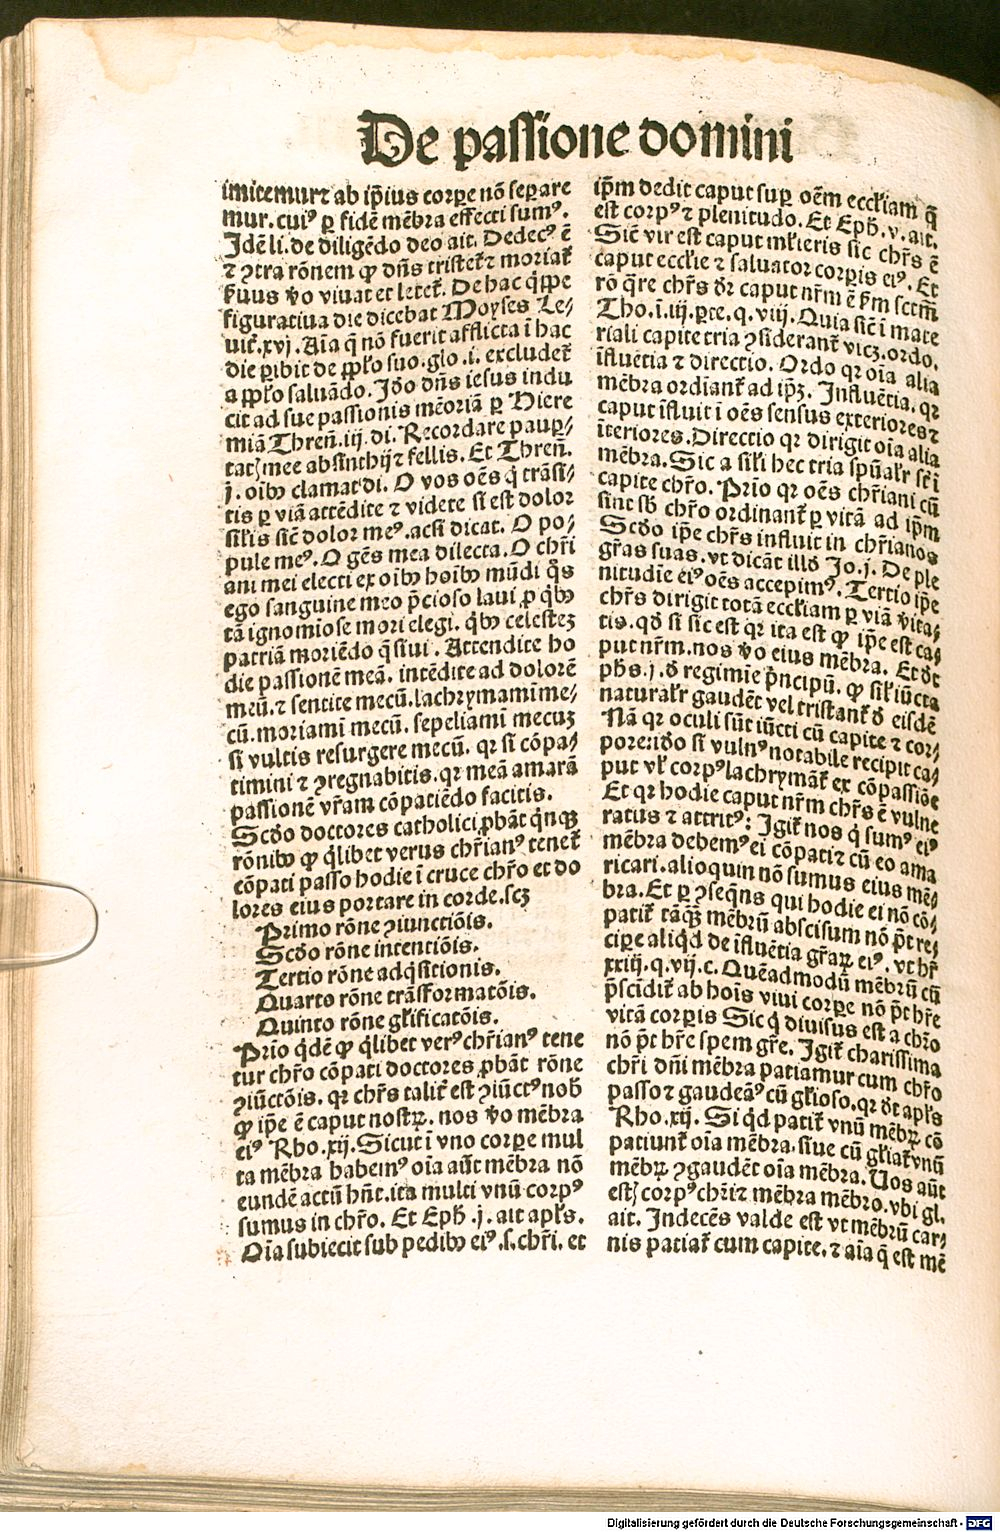 De passione domini
imitemurꝛ ab ip̄ius corꝑe nō separe
mur. cuiꝰ ꝑ fidē mēbra effecti sumꝰ.
Idē li. de diligēdo deo ait. Dedecꝰ ē
ꞇ ꝯtra rōnem ꝙ dn̄s tristet᷑ ꞇ moriat᷑
seruus ꝟo viuat et letet᷑. De hac q̄ppe
figuratiua die dicebat Moyses Le⸗
uit᷑.xvj. Aīa q̄ nō fuerit afflicta ī hac
die ꝑibit de ꝓpl'o suo. glo .i. excludet᷑
a ꝓpl'o saluādo. Iōo dn̄s iesus indu
cit ad sue passionis mēoriā ꝑ Hiere
miā Thren̄.iij. di. Recordare pauꝑ⸗
tatꝭ mee absinthijꞇ fellis. Et Thren̄.
j. oībꝰ clamat di. O vos oēs q̇ trāsi⸗
tis ꝑ viā attēdite ꞇ videte si est dolor
sil'is sic̄ dolor meꝰ. acsi dicat. O po⸗
pule meꝰ. O gēs mea dilecta. O chr̄i
ani mei electi ex oībꝰ hoībꝰ mūdi q̊s
ego sanguine meo p̄cioso laui. ꝓ q̇bꝰ
tā ignomīose mori elegi. q̇bꝰ celestez
patriā moriēdo q̄siui. Attendite ho
die passionē meā. intēdite ad dolorē
meū. ꞇ sentite mecū. lachrymamī me⸗
cū. moriamī mecū. sepeliamī mecuz
si vultis resurgere mecū. qꝛ si cōpa⸗
timini ꞇ ꝯregnabitis. qꝛ meā amarā
passionē vr̄am cōpatiēdo facitis.
Scōo doctores catholici ꝓbāt q̇nqꝫ
rōnibꝰ ꝙ q̇libet verus chr̄ianꝰ tenet᷑
cōpati passo hodie ī cruce chr̄o et do
lores eius portare in corde. scꝫ
Primo rōne ꝯiunctiōis.
Scōo rōne intentiōis.
Tertio rōne adq̇sitionis.
Quarto rōne trāsformatōis.
Quinto rōne gl'ificatōis.
Prīo q̇dē ꝙ q̇libet verꝰ chr̄ianꝰ tene
tur chr̄o cōpati doctores ꝓbāt rōne
ꝯiūctōis. qꝛ chr̄s talit᷑ est ꝯiūctꝰ nob̄
ꝙ ip̄e ē caput nostꝝ. nos ꝟo mēbra
eiꝰ Rho.xij. Sicut ī vno corꝑe mul
ta mēbra habemꝰ oīa aūt mēbra nō
eundē actū hn̄t. ita multi vnū corpꝰ
sumus in chr̄o. Et Eph̄ .j. ait apl's.
Oīa subiecit sub pedibꝰ eiꝰ .s. chr̄i. et
ip̄m dedit caput suꝑ oēm eccl'iam q̄
est corpꝰ ꞇ plenitudo. Et Eph̄. v. ait.
Sic̄ vir est caput ml'ieris sic chr̄s ē
caput eccl'ie ꞇ saluator corꝑis eiꝰ. Et
rō q̄re chr̄s dr̄ caput nr̄m ē ẜm sctm̄
Tho.i.iij.ꝑte.q.viij. Quia sic̄ ī mate
riali capite tria ꝯsiderant᷑ vicꝫ. ordo.
īfluētia ꞇ directio. Ordo qꝛ oīa alia
mēbra ordīant᷑ ad ip̄ꝫ. Influētia. qꝛ
caput īfluit ī oēs sensus exterioresꞇ
īteriores. Directio qꝛ dirigit oīa alia
mēbra. Sic a sil'i hec tria spūal'r sr̄ ī
capite chr̄o. Prīo qꝛ oēs chr̄iani cū
sint sb̄ chr̄o ordinant᷑ ꝑ vitā ad ip̄m
Scōo ip̄e chr̄s influit in chr̄ianos
gr̄as suas. vt dicāt illō Jo.j. De ple
nitudīe eiꝰ oēs accepimꝰ. Tertio ip̄e
chr̄s dirigit totā eccl'iam ꝑ viā vita⸗
tis. qō si sic est qꝛ ita est ꝙ ip̄e est ca⸗
put nr̄m. nos ꝟo eius mēbra. Et dc̄t
ph̄s .j. ō regimīe p̄ncipū. ꝙ sil' iūcta
natural'r gaudēt vel tristant᷑ ō eisdē
Nā qꝛ oculi sūt iūcti cū capite ꞇ cor⸗
pore iōo si vulnꝰ notabile recipit ca⸗
put vl' corpꝰ lachrymāt᷑ ex cōpassiōe
Et qꝛ hodie caput nr̄m chr̄s ē vulne
ratus ꞇ attritꝰ: Igit᷑ nos q̇ sumꝰ eiꝰ
mēbra debemꝰ ei cōpatiꞇ cū eo ama
ricari. alioquin nō sumus eius mē⸗
bra. Et ꝑ ꝯseq̄ns qui hodie ei nō cō⸗
patit᷑ tāq̄ꝫ mēbrū abscisum nō pōt re⸗
ciꝑe aliq̇d de īfluētia gr̄aꝝ eiꝰ. vt hr̄
xxiij.q.vij.c. Quēadmodū mēbrū cū
p̄scīdit᷑ ab hoīs viui corꝑe nō pōt hr̄e
vitā corꝑis Sic q̇ diuisus est a chr̄o
nō pōt hr̄e spem gr̄e. Igit᷑ charissima
chr̄i dn̄i mēbra patiamur cum chr̄o
passo ꞇ gaudeāꝰ cū gl'ioso. qꝛ dc̄t apl's
Rho.xij. Si q̇d patit᷑ vnū mēbꝝ cō
patiunt᷑ oīa mēbra. siue cū gl'iat᷑ vnū
mēbꝝ ꝯgaudēt oīa mēbra. Uos aūt
estꝭ corpꝰ chr̄i ꞇ mēbra mēbro. vbi gl.
ait. Indecēs valde est vt mēbrū car⸗
nis patiat᷑ cum capite. ꞇ aīa q̄ est mē
Digitalisierung gefördert durch die Deutsche Forschungsgemeinschaft - DFG